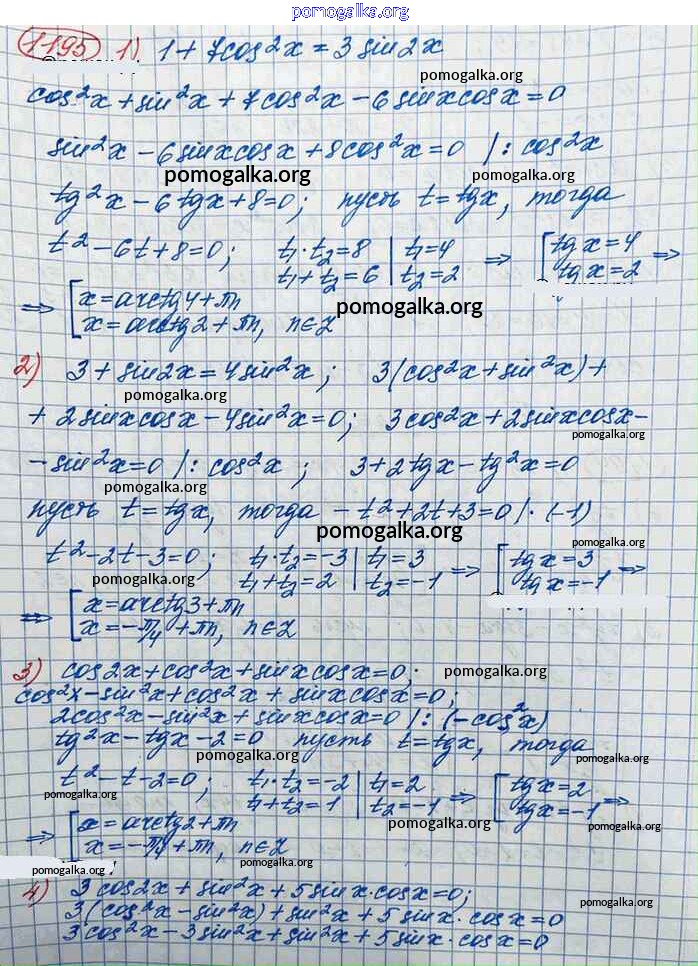 pomogalka.org
1195 1) 1 + 7cos²x = 3 sin2x
pomogalka.org
cos²x + sin²x + 7cos²x - 6 sinxcosx = 0
sin²x - 6sinxcosx + 8cos²x = 0 /: cos²x
pomogalka.org pomogalka.org
tg²x - 6tgx + 8 = 0; пусть t = tgx, тогда
t² - 6t + 8 = 0; t₁·t₂ = 8 | t₁ = 4 ⇒ [ tgx = 4 ⇒
t₁ + t₂ = 6 | t₂ = 2 tgx = 2
⇒ [ x = arctg4 + πn
x = arctg2 + πn, n∈Z pomogalka.org
2) 3 + sin2x = 4sin²x; 3(cos²x + sin²x) +
pomogalka.org
+ 2sinxcosx - 4sin²x = 0; 3cos²x + 2sinxcosx -
pomogalka.org
- sin²x = 0 /: cos²x; 3 + 2tgx - tg²x = 0
pomogalka.org
пусть t = tgx, тогда - t² + 2t + 3 = 0 /·(-1)
pomogalka.org
pomogalka.org
t² - 2t - 3 = 0; t₁·t₂ = -3 | t₁ = 3 ⇒ [ tgx = 3 ⇒
pomogalka.org t₁ + t₂ = 2 | t₂ = -1 tgx = -1
⇒ [ x = arctg3 + πn
x = -π/4 + πn, n∈Z
3) cos2x + cos²x + sinxcosx = 0; pomogalka.org
cos²x - sin²x + cos²x + sinxcosx = 0;
2cos²x - sin²x + sinxcosx = 0 /: (-cos²x)
tg²x - tgx - 2 = 0 пусть t = tgx, тогда
pomogalka.org pomogalka.org
t² - t - 2 = 0; t₁·t₂ = -2 | t₁ = 2 ⇒ [ tgx = 2 ⇒
pomogalka.org t₁ + t₂ = 1 | t₂ = -1 tgx = -1
⇒ [ x = arctg2 + πn pomogalka.org pomogalka.org
x = -π/4 + πn, n∈Z
pomogalka.org pomogalka.org
4) 3cos2x + sin²x + 5sinx·cosx = 0;
pomogalka.org
3(cos²x - sin²x) + sin²x + 5sinx·cosx = 0
3cos²x - 3sin²x + sin²x + 5sinx·cosx = 0